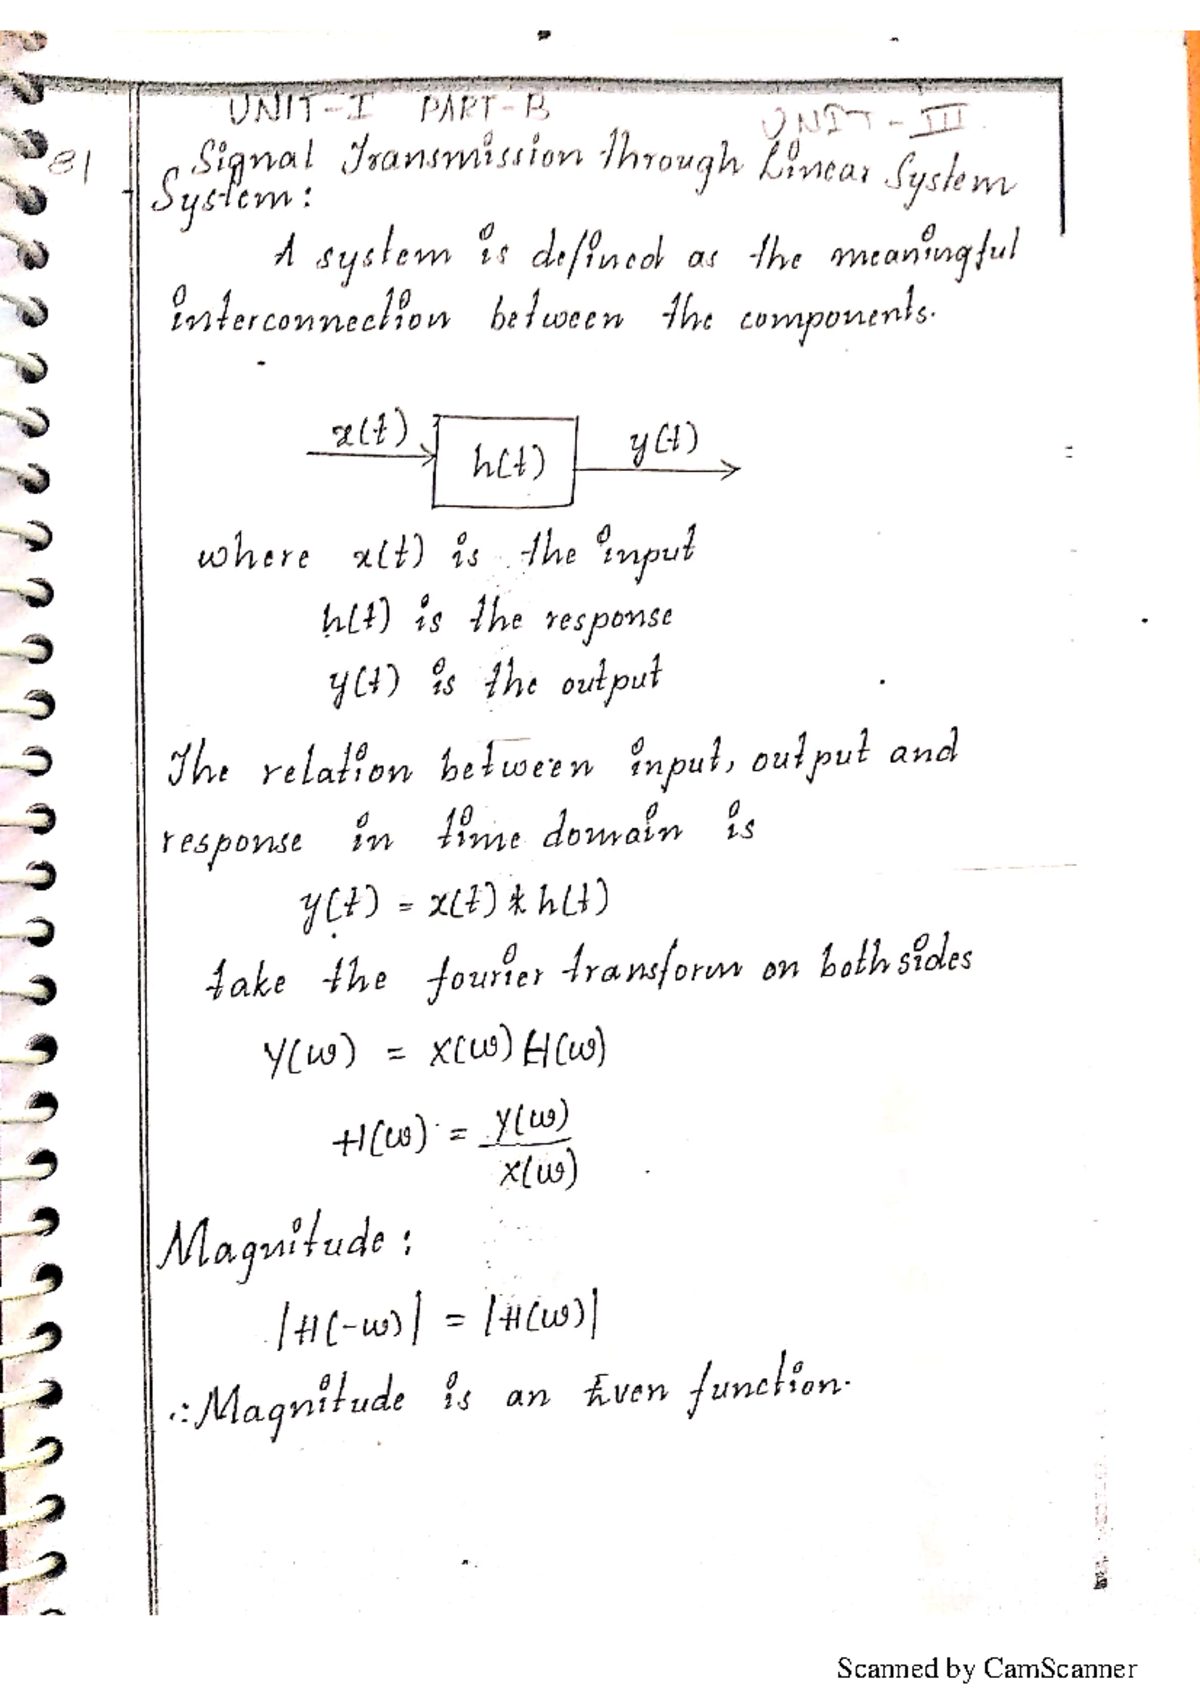 UNIT-I PART-B
UNIT-III.
81
Signal Transmission through Linear System
System:
A system is defined as the meaningful
interconnection between the components.
x(t) h(t) y(t)
where x(t) is the input
h(t) is the response
y(t) is the output
The relation between input, output and
response in time domain is
y(t) = x(t) * h(t)
take the fourier transform on both sides
Y(ω) = X(ω) H(ω)
H(ω) = Y(ω)
X(ω)
Magnitude:
|H(-ω)| = |H(ω)|
∴ Magnitude is an Even function.
Scanned by CamScanner